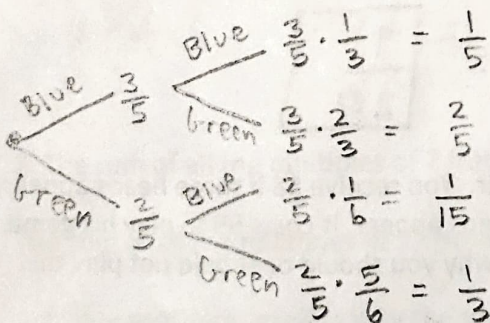 Blue 3/5 · 1/3 = 1/5
Blue 3/5
Green 3/5 · 2/3 = 2/5
Green 2/5
Blue 2/5 · 1/6 = 1/15
Green 2/5 · 5/6 = 1/3